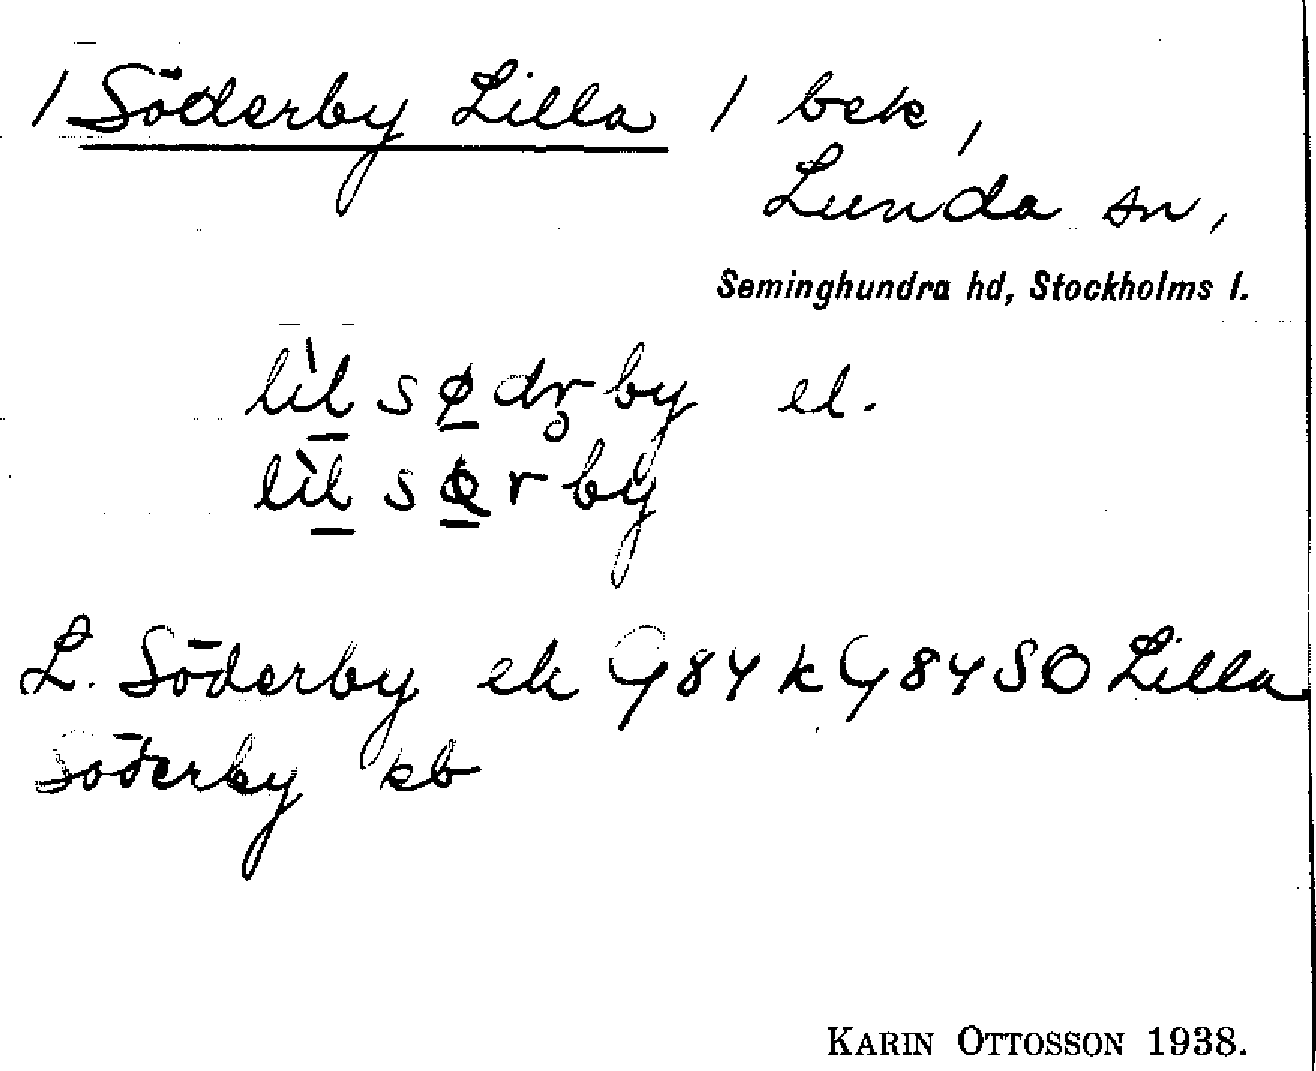 / Söderby Lilla / bek,
Lunda sn,
Seminghundra hd, Stockholms l.
lìl sødr̥by el.
lìl sørby
L. Söderby ek G84k G84SO Lilla
Söderby kb
KARIN OTTOSSON 1938.